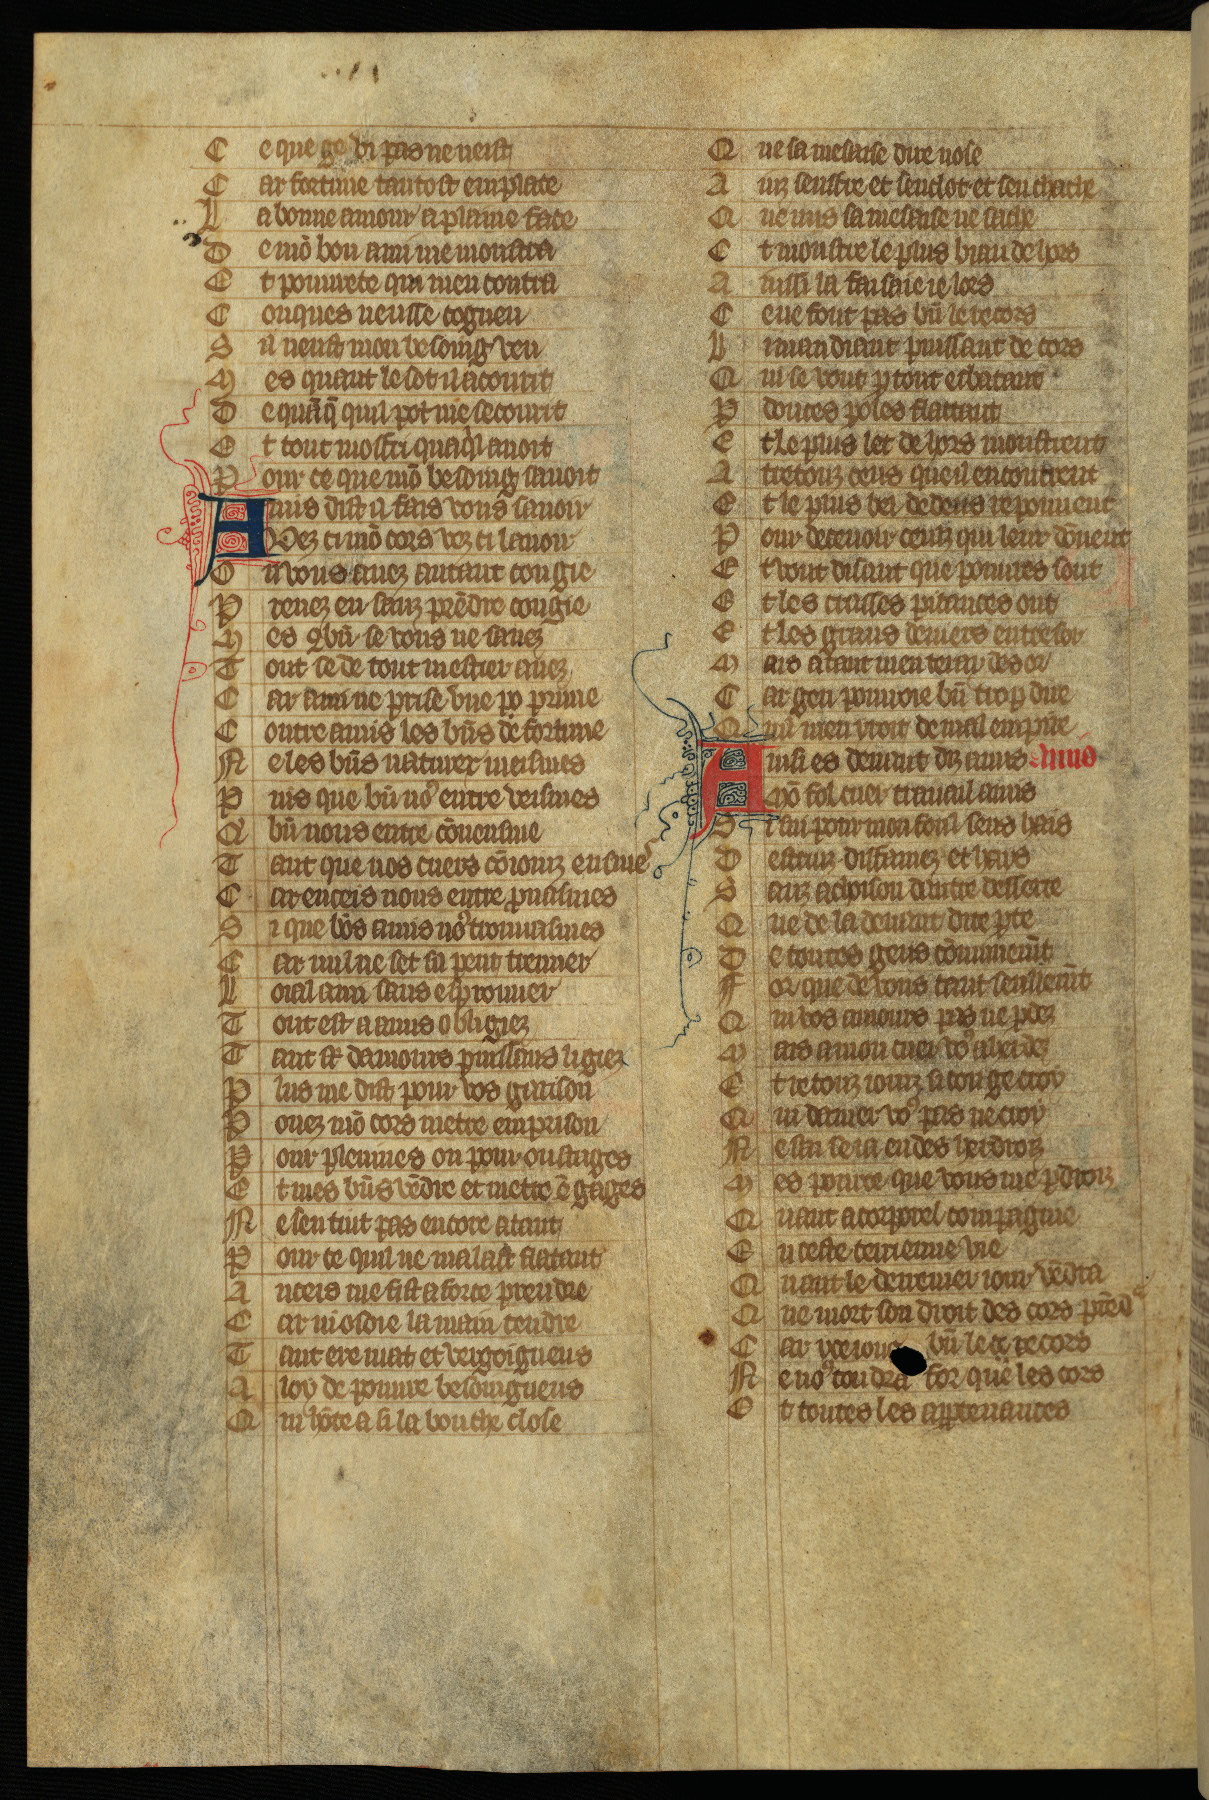 C e que ge vi pas ne veist
C ar fortune tantost en place
L a bonne amour a plaine face
D e mō bon ami me monstra
E t pourete qui men contra
C onques neusse cogneu
S il neust mon besoing veu
M es quant le sot il acourut
D e quāq̄ quil pot me secourut
E t tout moffri quāqil auoit
P our ce que mō besoing sauoit
A mis dist il fais vous sauoir
Vez ci mō cors vez ci lauoir
O u vous auez autant congie
P renez en sanz prēdre congie
M es 9bn̄ se vous ne sauez
T out se de tout mestier auez
C ar ami ne prise vne po prune
C ontre amis les bn̄s de fortune
N e les bn̄s naturex meismes
P uis que bn̄ no9 entre veismes
Q bn̄ nous entre cōneusme
T ant que nos cuers cōioinz eusme
C ar enceis nous entre prouasmes
S i que bōs amis no9 trouuasmes
C ar nul ne set sil peut trenner
L oial ami sans esprouuer
T out est a amis obligiez
T ant st damours puissans ligiez
P lus me dist pour vos garison
P ouez mō cors metre em prison
P our pleiuues ou pour oustages
E t mes bn̄s vēdre et metre ē gages
N e sen tint pas encore a tant
P our ce quil ne malast flatant
A nceis me fist a force prendre
C ar ni osoie la main tendre
T ant ere mat et vergoigneus
A loy de poure besoingneus
Q ui hōte a si la bouche close
Q ue sa mesaise dire nose
A inz seuffre et senclot et sen cache
Q ue nus sa mesaise ne sache
E t monstre le plus biau dehors
A inssi la faisaie ie lors
C e ne font pas bn̄ le recors
L i mandiant puissant de cors
Q ui se vont p tout ebatant
P doutes poles flatant
E t le plus let dehors monstrent
A tretouz ceus queil encontrent
E t le plus bel dedens reponnent
P our deceuoir ceulz qui leur dōnent
E t vont disant que poures sont
E t les crasses pitances ont
E t les grans deniers en tresor
M ais a tant men terai des or
C ar gen pourroie bn̄ trop dire
Q uil men vroit de mal em pire
A insi es deuant dis amis Amis
Mō fol cuer trauail amis
S i sui pour mon foul sens hais
D estruiz diffamez et hais
S anz achoison dautre desserte
Q ue de la deuant dite pte
D e toutes gens cōmunemēt
F or que de vous tant seullemēt
Q ui vos amours pas ne pdez
M ais a mon cuer vo9 aherdez
E t ie touz iourz si con ge croi
Q ui damer vo9 pas ne croy
N e sera se ia en des herdroiz
M es pource que vous me pdroiz
Q uant a corporel compaignie
E n ceste terrienne vie
Q uant le derrenier iour vēdra
Q ue mort son droit des cors prēdra
C ar bn̄ le recors
N e no9 toudra for que les cors
E t toutes les appartenances